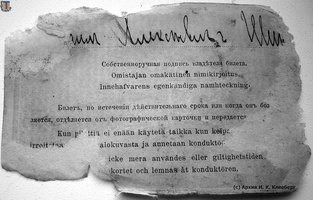 Собственноручная подпись владѣтеля билета.
Omistajan omakätinen nimikirjoitus.
Innehafvarens egenhändiga namnteckning.
Билетъ, по истеченіи дѣйствительнаго срока или когда онъ
ляется, отдѣляется отъ фотографической карточки и передается
Kun ei enään käytetä taikka kun
alokuvasta ja annetaan kondukto
icke mera användes eller giltighetstiden
kortet och lemnas åt konduktören.
(c) Архив И. К.